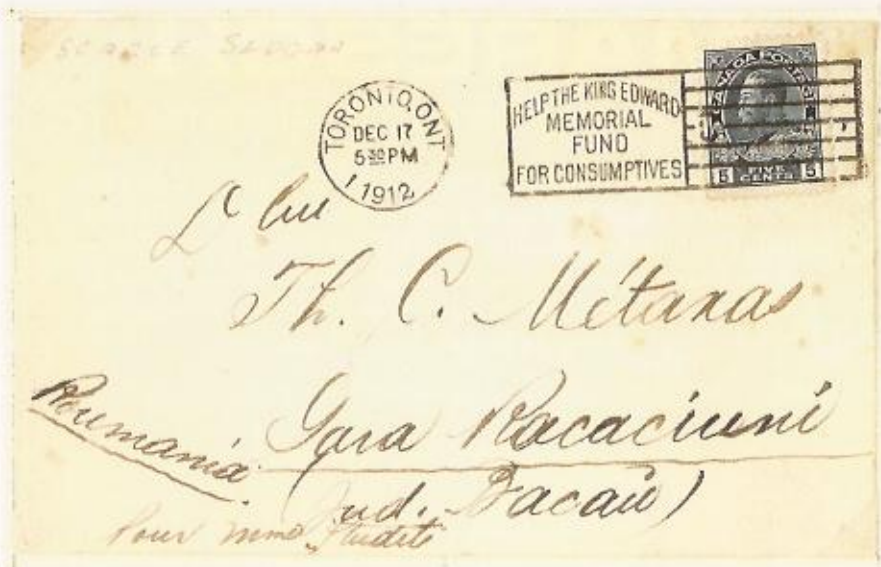 SCARCE
TORONTO, ONT
DEC 17
5 30 PM
1912
HELP THE KING EDWARD
MEMORIAL
FUND
FOR CONSUMPTIVES
CANADA POSTAGE
5 FIVE CENTS 5
Th. C. Métaxas
Gara Racaciuni
Roumania
Jud. Bacaŭ)
Pour